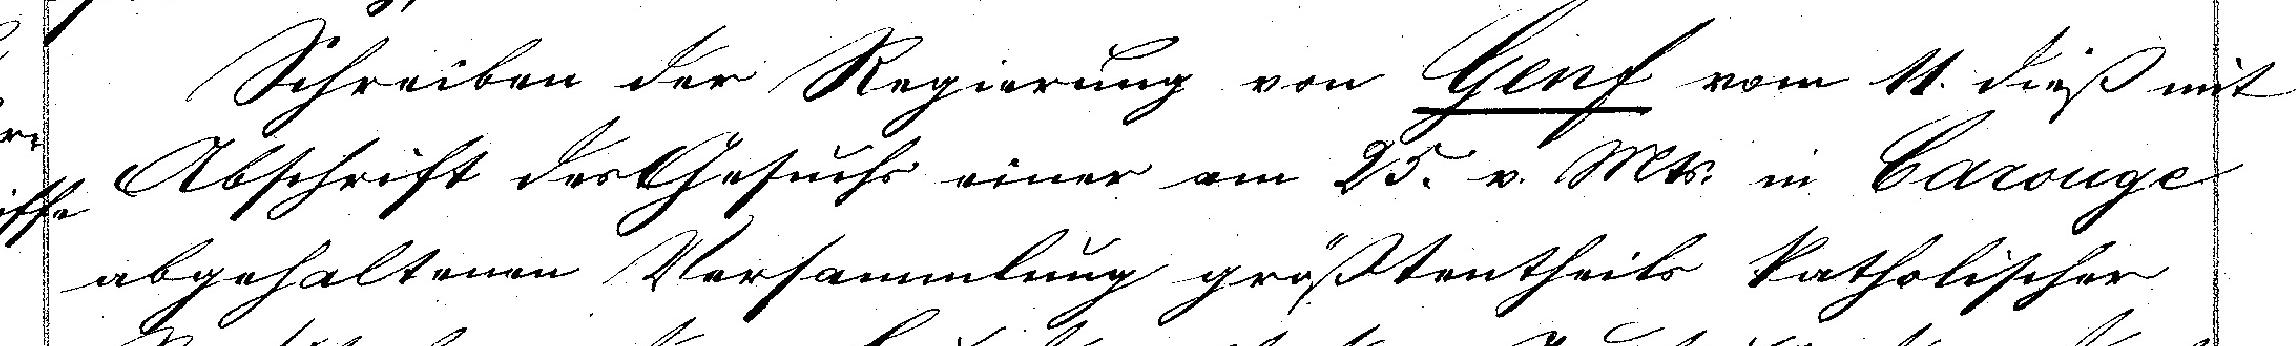 Schreiben der Regierung von Genf vom 11. dieß mit
Abschrift des Gesuchs einer am 25. v. Mts. in Carouge
abgehaltenen Versammlung größtentheils katholischer